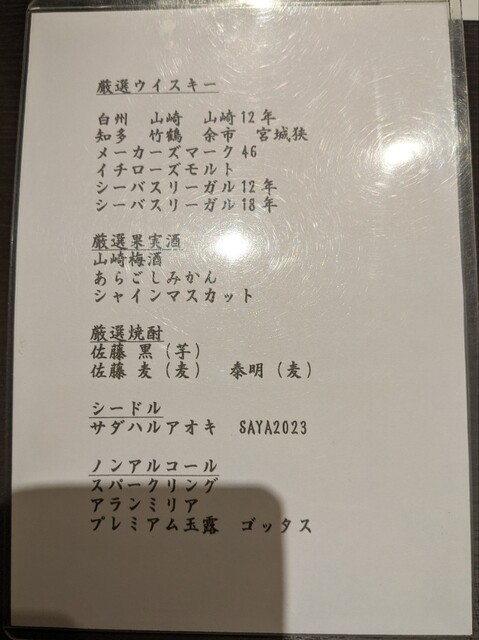 厳選ウイスキー
白州　山崎　山崎12年
知多　竹鶴　余市　宮城狭
メーカーズマーク46
イチローズモルト
シーバスリーガル12年
シーバスリーガル18年
厳選果実酒
山崎梅酒
あらごしみかん
シャインマスカット
厳選焼酎
佐藤 黒（芋）
佐藤 麦（麦）　泰明（麦）
シードル
サダハルアオキ　SAYA2023
ノンアルコール
スパークリング
アランミリア
プレミアム玉露　ゴッタス